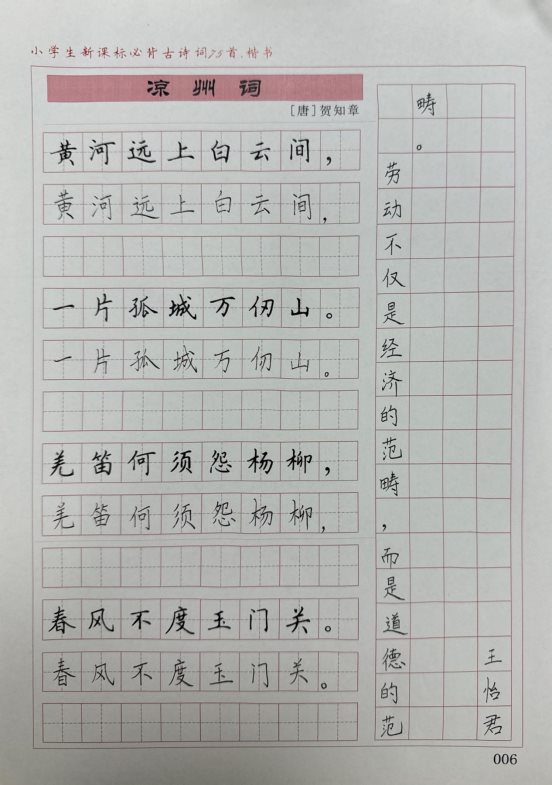 小学生新课标必背古诗词75首.楷书
凉州词
[唐]贺知章
黄河远上白云间，
黄河远上白云间，
一片孤城万仞山。
一片孤城万仞山。
羌笛何须怨杨柳，
羌笛何须怨杨柳，
春风不度玉门关。
春风不度玉门关。
劳动不仅是经济的范畴，而是道德的范
畴。
王怡君
006